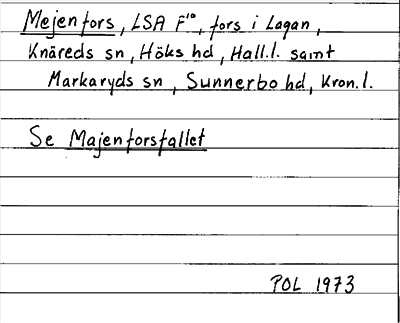 Mejenfors, LSA F¹⁰, fors i Lagan,
Knäreds sn, Höks hd, Hall.l. samt
Markaryds sn, Sunnerbo hd, Kron.l.
Se Majenforsfallet
POL 1973